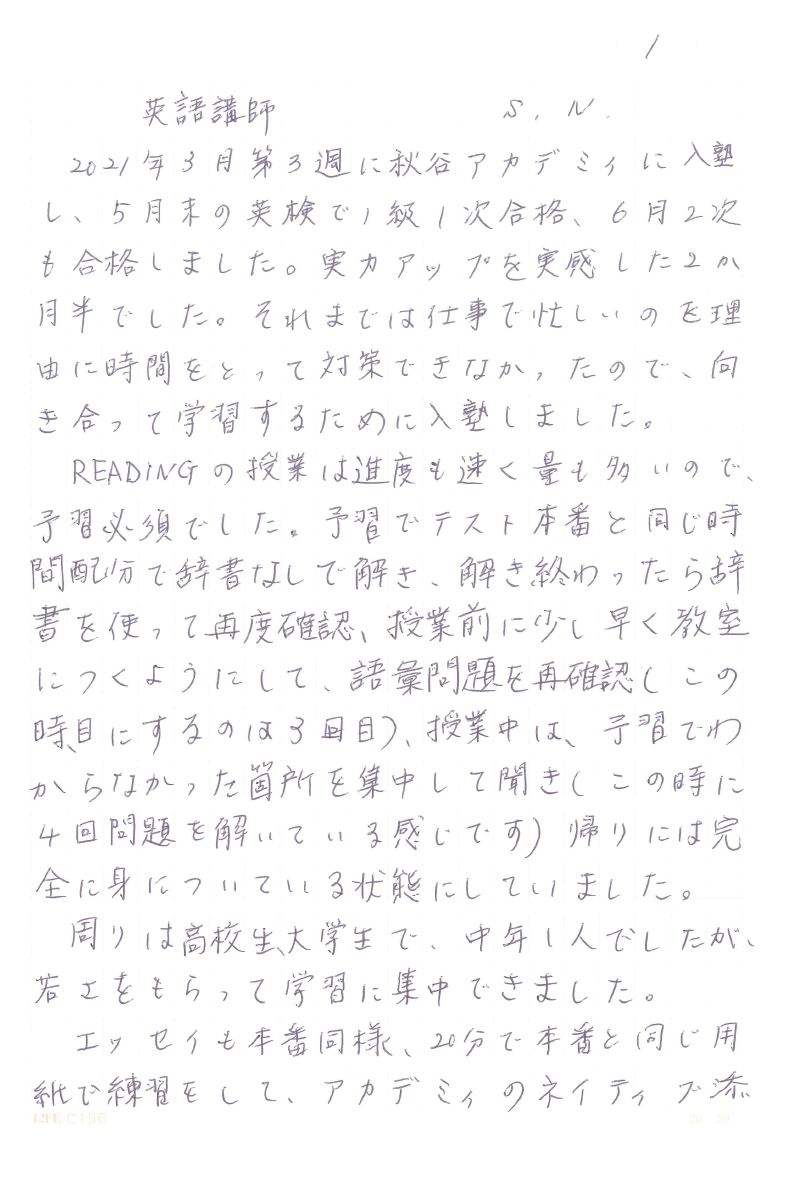 1
英語講師　S.N.
2021年3月第3週に秋谷アカデミィに入塾
し、5月末の英検で1級1次合格、6月2次
も合格しました。実力アップを実感した2か
月半でした。それまでは仕事で忙しいのを理
由に時間をとって対策できなかったので、向
き合って学習するために入塾しました。
READINGの授業は進度も速く量も多いので、
予習必須でした。予習でテスト本番と同じ時
間配分で辞書なしで解き、解き終わったら辞
書を使って再度確認、授業前に少し早く教室
につくようにして、語彙問題を再確認(この
時、目にするのは3回目)、授業中は、予習でわ
からなかった箇所を集中して聞き(この時に
4回問題を解いている感じです)帰りには完
全に身についている状態にしていました。
周りは高校生、大学生で、中年1人でしたが、
若さをもらって学習に集中できました。
エッセイも本番同様、20分で本番と同じ用
紙で練習をして、アカデミィのネイティブ添
LIFE C156
20 20